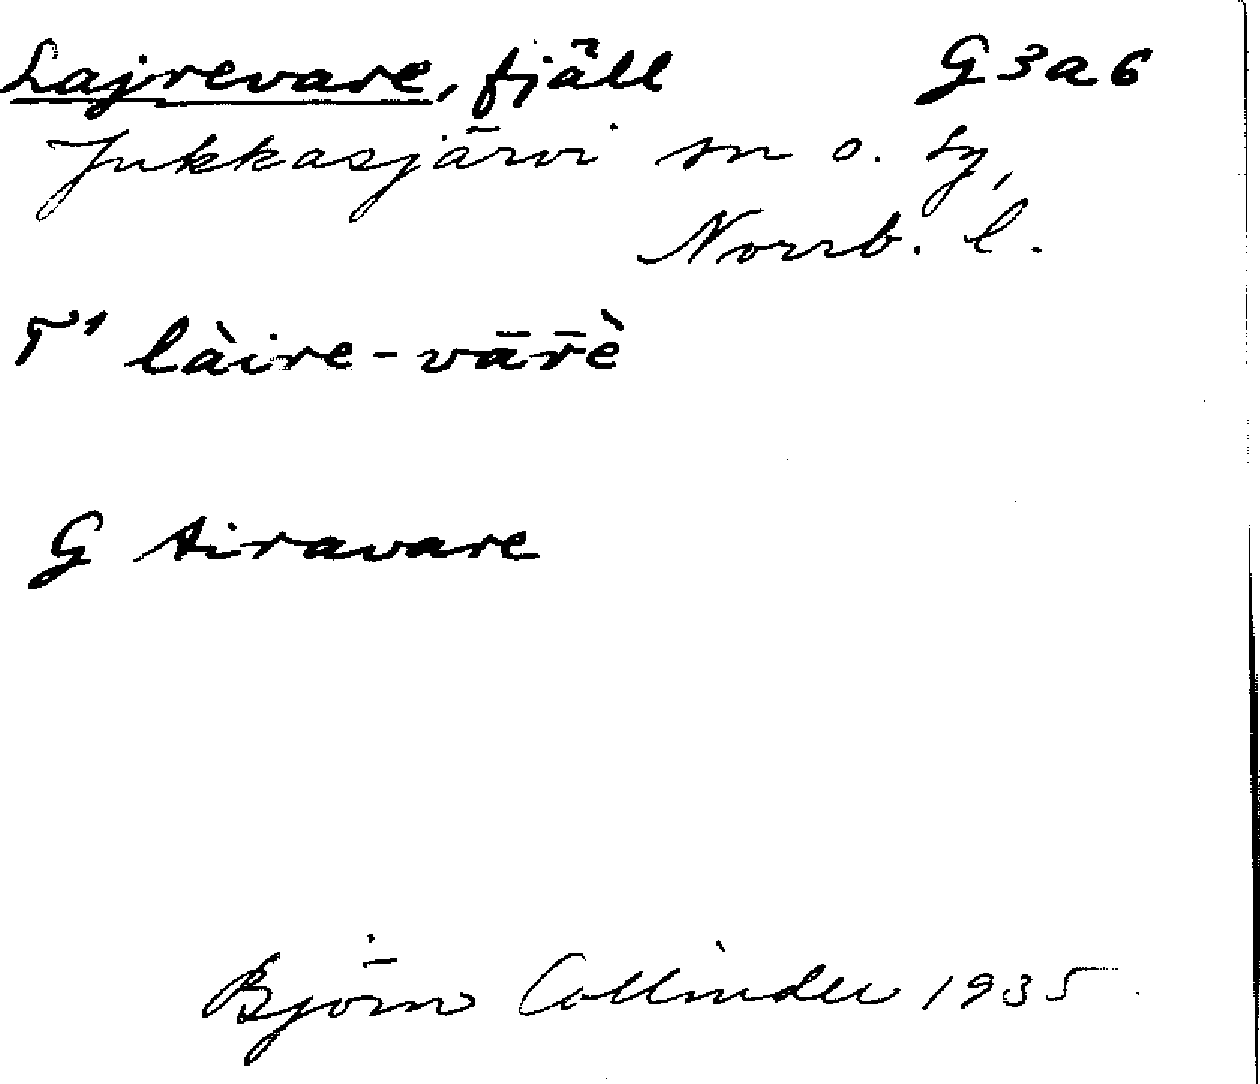 Lajrevare, fjäll G3a6
Jukkasjärvi sn o. tg,
Norrb. l.
T' làire-vārè
G Airavare
Björn Collinder 1935